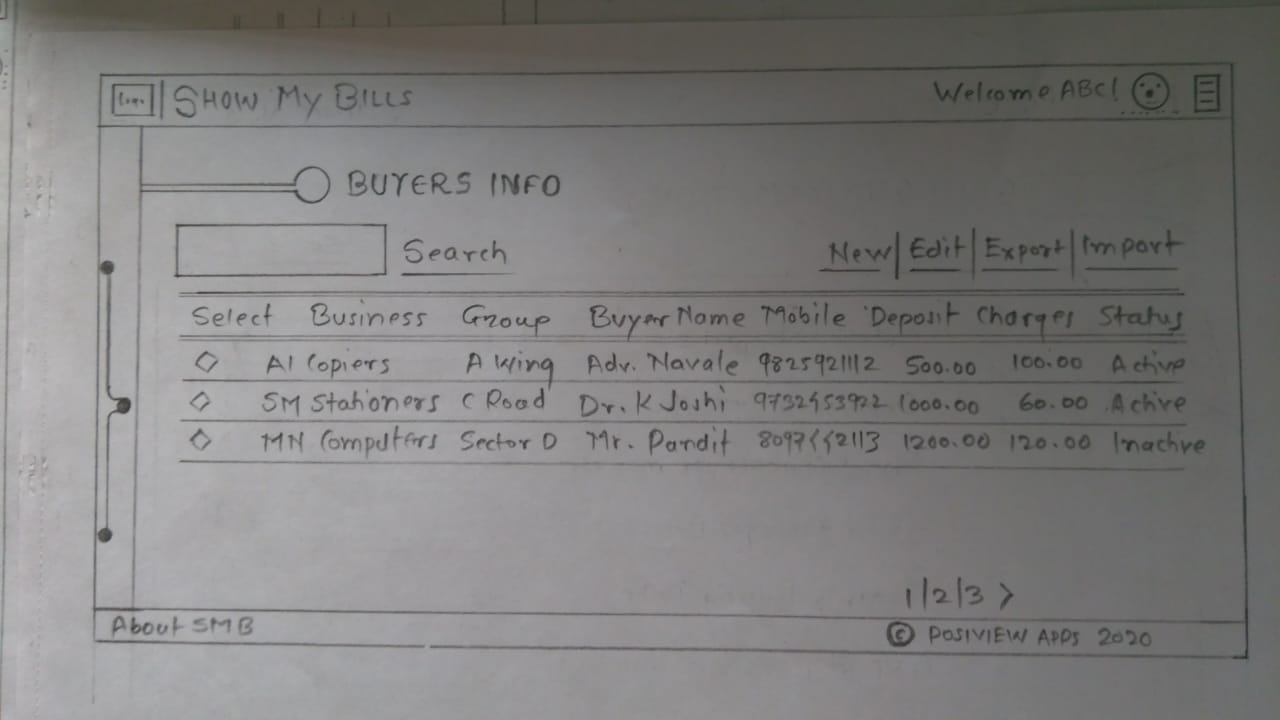 Logo SHOW MY BILLS Welcome ABC!
BUYERS INFO
Search New | Edit | Export | Import
Select Business Group Buyer Name Mobile Deposit Charges Status
A1 Copiers A Wing Adv. Navale 9825921112 500.00 100.00 Active
SM Stationers C Road Dr. K Joshi 1000.00 60.00 Active
MN Computers Sector D Mr. Pandit 1200.00 120.00 Inactive
1/2/3 >
About SMB © POSIVIEW APPS 2020